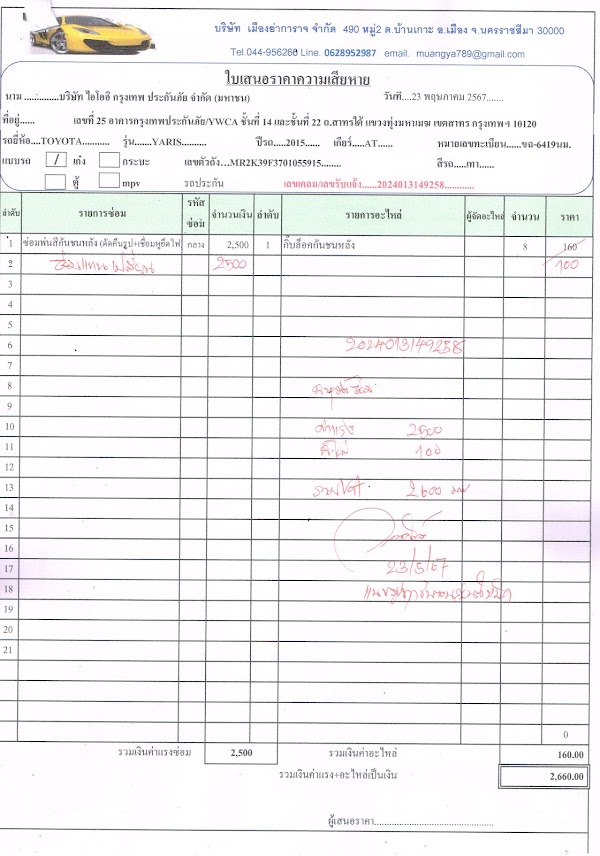 บริษัท เมืองย่าการาจ จำกัด 490 หมู่2 ต.บ้านเกาะ อ.เมือง จ.นครราชสีมา 30000
Tel.044-956266 Line. 0628952987 email. muangya789@gmail.com
ใบเสนอราคาความเสียหาย
นาม ..............บริษัท ไอโออิ กรุงเทพ ประกันภัย จำกัด (มหาชน) วันที่....23 พฤษภาคม 2567.......
ที่อยู่...... เลขที่ 25 อาคารกรุงเทพประกันภัย/YWCA ชั้นที่ 14 และชั้นที่ 22 ถ.สาทรใต้ แขวงทุ่งมหาเมฆ เขตสาทร กรุงเทพฯ 10120
รถยี่ห้อ....TOYOTA........... รุ่น.......YARIS.......... ปีรถ.....2015...... เกียร์.....AT...... หมายเลขทะเบียน......ขฉ-6419นม.
แบบรถ / เก๋ง กระบะ เลขตัวถัง...MR2K39F3701055915........ สีรถ....เทา......
ตู้ mpv รถประกัน เลขเคลม/เลขรับแจ้ง......2024013149258............
ลำดับ รายการซ่อม รหัสซ่อม จำนวนเงิน ลำดับ รายการอะไหล่ ผู้จัดอะไหล่ จำนวน ราคา
1 ซ่อมพ่นสีกันชนหลัง (ดัดคืนรูป+เชื่อมหูยึดไฟ กลาง 2,500 1 กิ๊บล็อคกันชนหลัง 8 160
2 2500 100
3
4
5
6 2024013149258
7
8
9
10 ค่าแรง 2500
11 100
12
13 2600
14
15
16
17 23/5/67
18
19
20
21
0
รวมเงินค่าแรงซ่อม 2,500 รวมเงินค่าอะไหล่ 160.00
รวมเงินค่าแรง+อะไหล่เป็นเงิน 2,660.00
ผู้เสนอราคา........................................